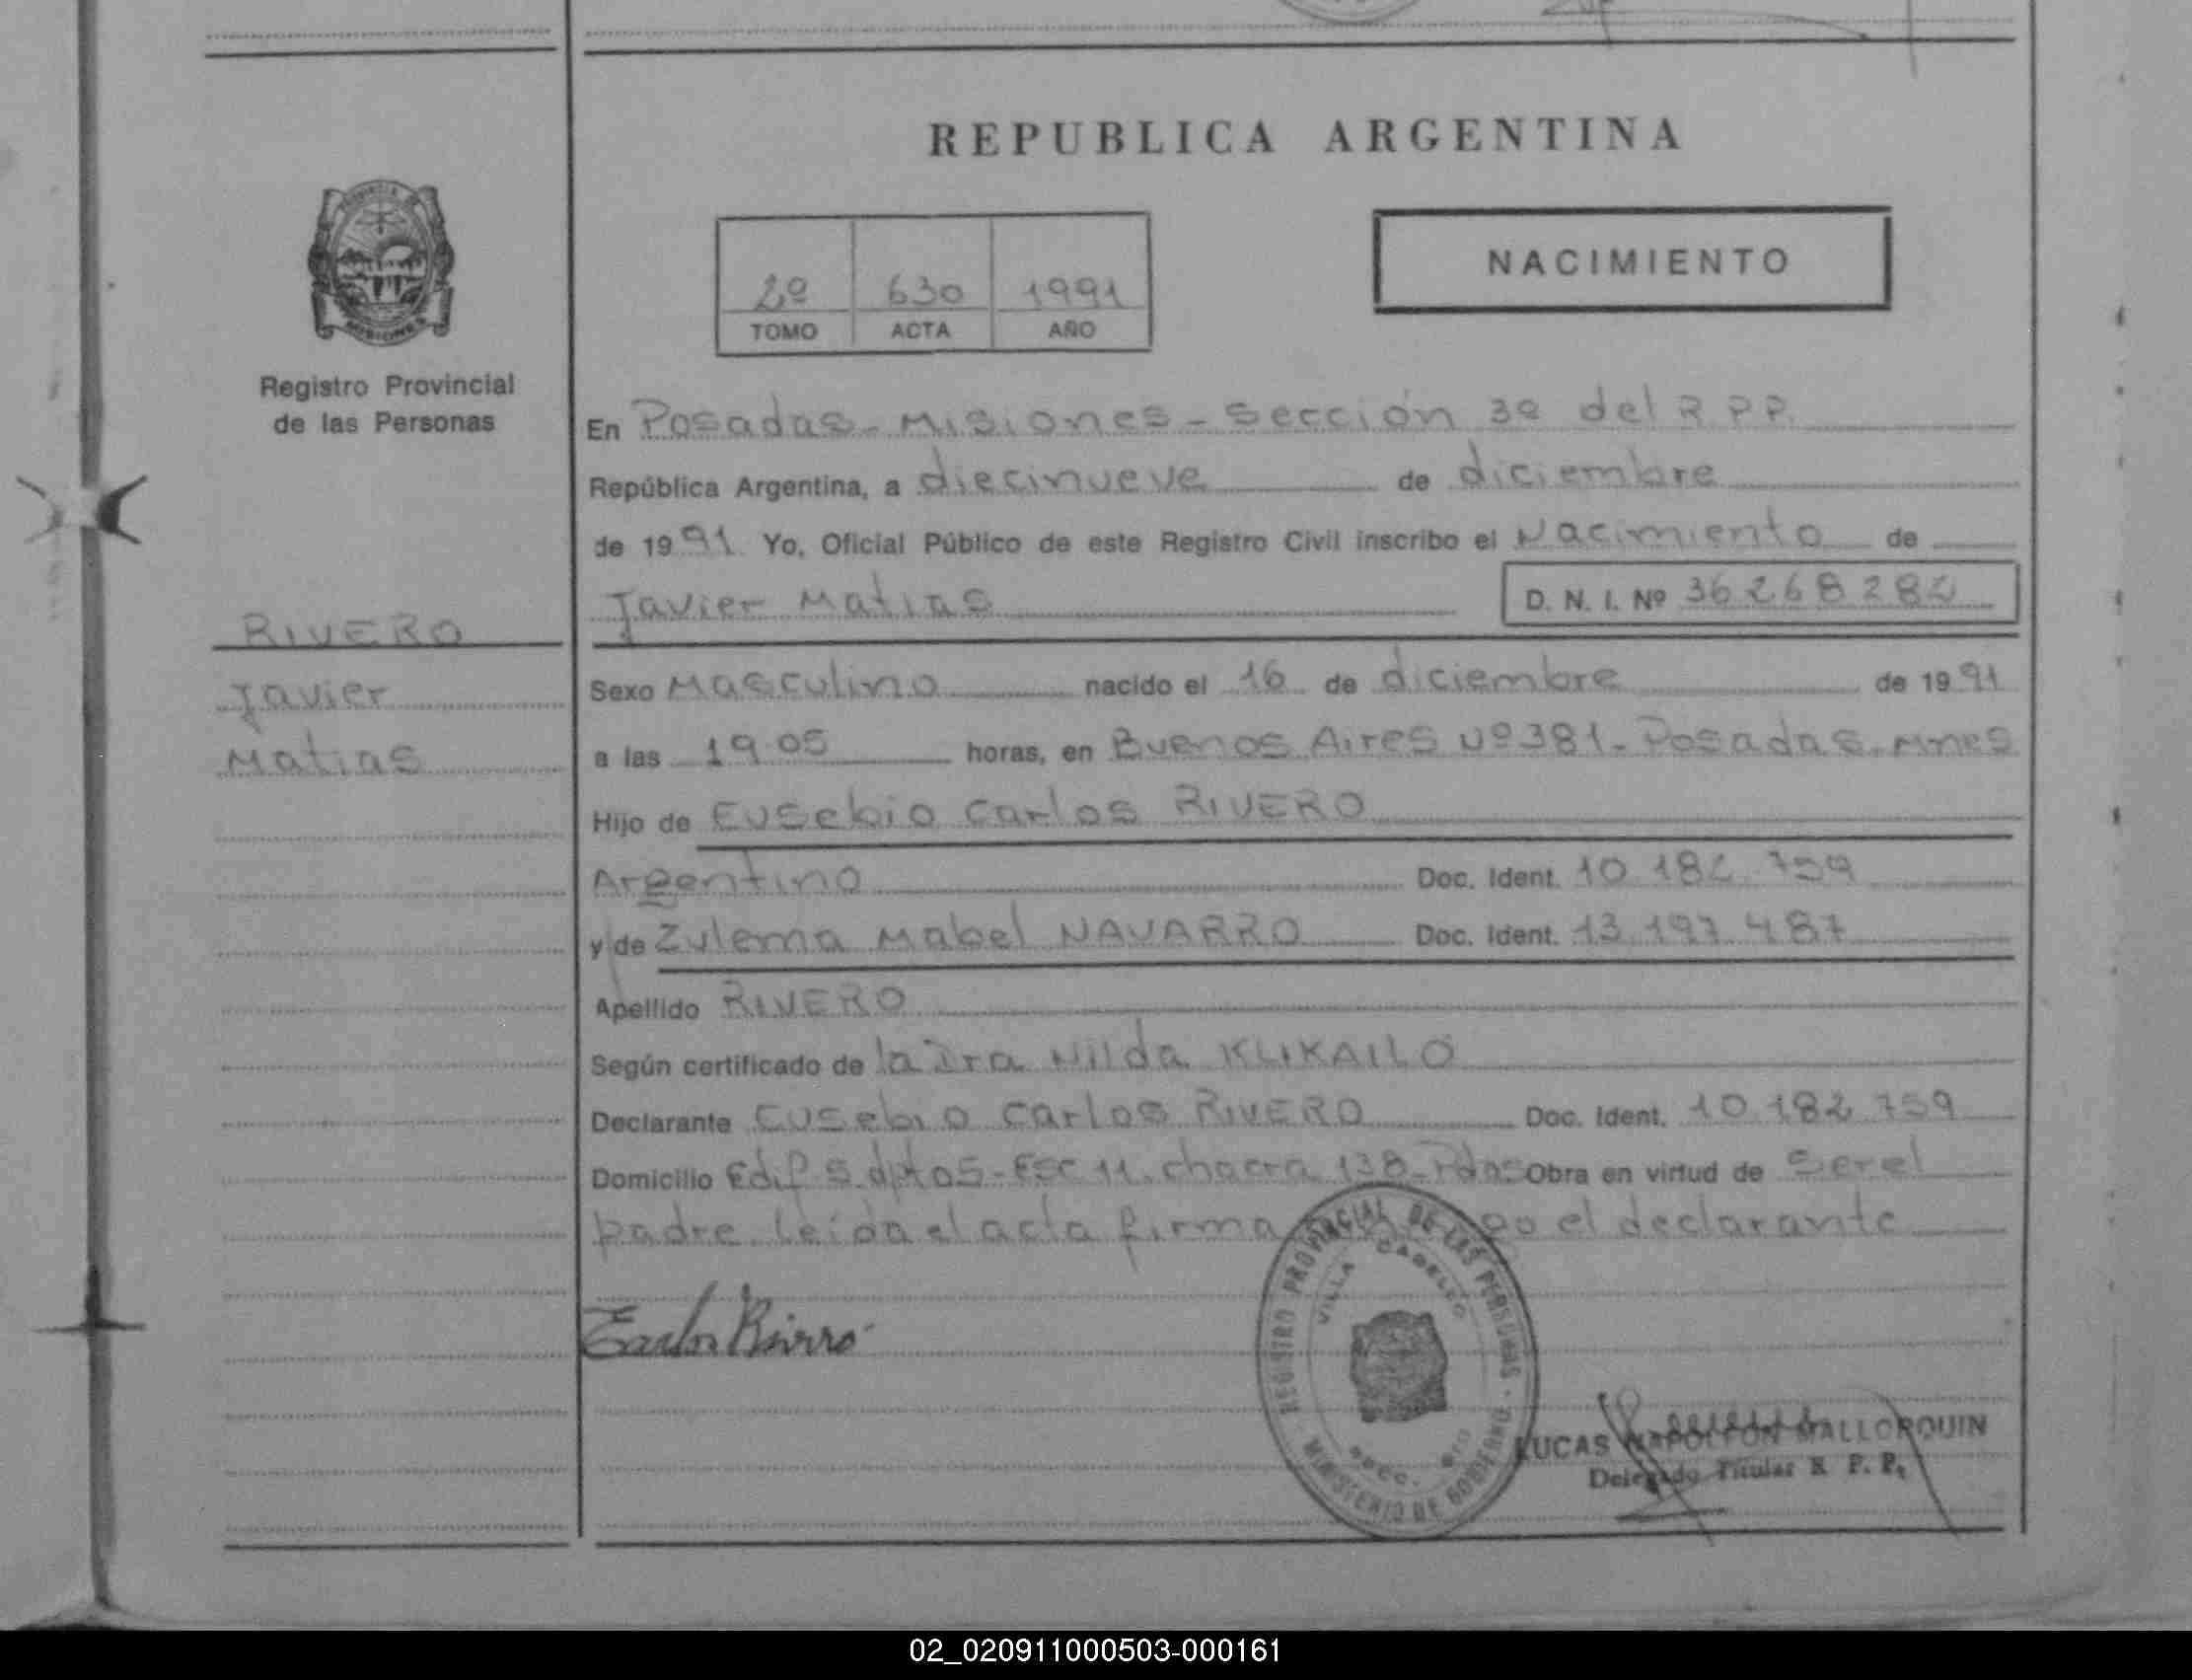 REPUBLICA ARGENTINA
NACIMIENTO
2º 630 1991
TOMO ACTA AÑO
PROVINCIA DE
MISIONES
Registro Provincial
de las Personas
RIVERO
Javier
Matias
En Posadas - Misiones - Sección 3º del R.P.P.
República Argentina, a diecinueve de diciembre
de 1991 Yo, Oficial Público de este Registro Civil inscribo el Nacimiento de
Javier Matias D. N. I. Nº 36 268 282
Sexo Masculino nacido el 16 de diciembre de 1991
a las 19.05 horas, en Buenos Aires Nº 381 - Posadas. Mnes
Hijo de Eusebio Carlos RIVERO
Argentino Doc. Ident. 10 182 759
y de Zulema Mabel NAVARRO Doc. Ident. 13.197 487
Apellido RIVERO
Según certificado de la Dra Nilda KLIKAILO
Declarante Eusebio Carlos RIVERO Doc. Ident. 10.182 759
Domicilio Edif 5 dpto 5 - Esc 11. chacra 138 - Pdas Obra en virtud de ser el
padre. Leida el acta firma el declarante
Carlos Rivero
REGISTRO PROVINCIAL DE LAS PERSONAS
VILLA CABELLO
MINISTERIO DE GOBIERNO
LUCAS NAPOLEON MALLORQUIN
Delegado Titular R. P. P.
02_020911000503-000161